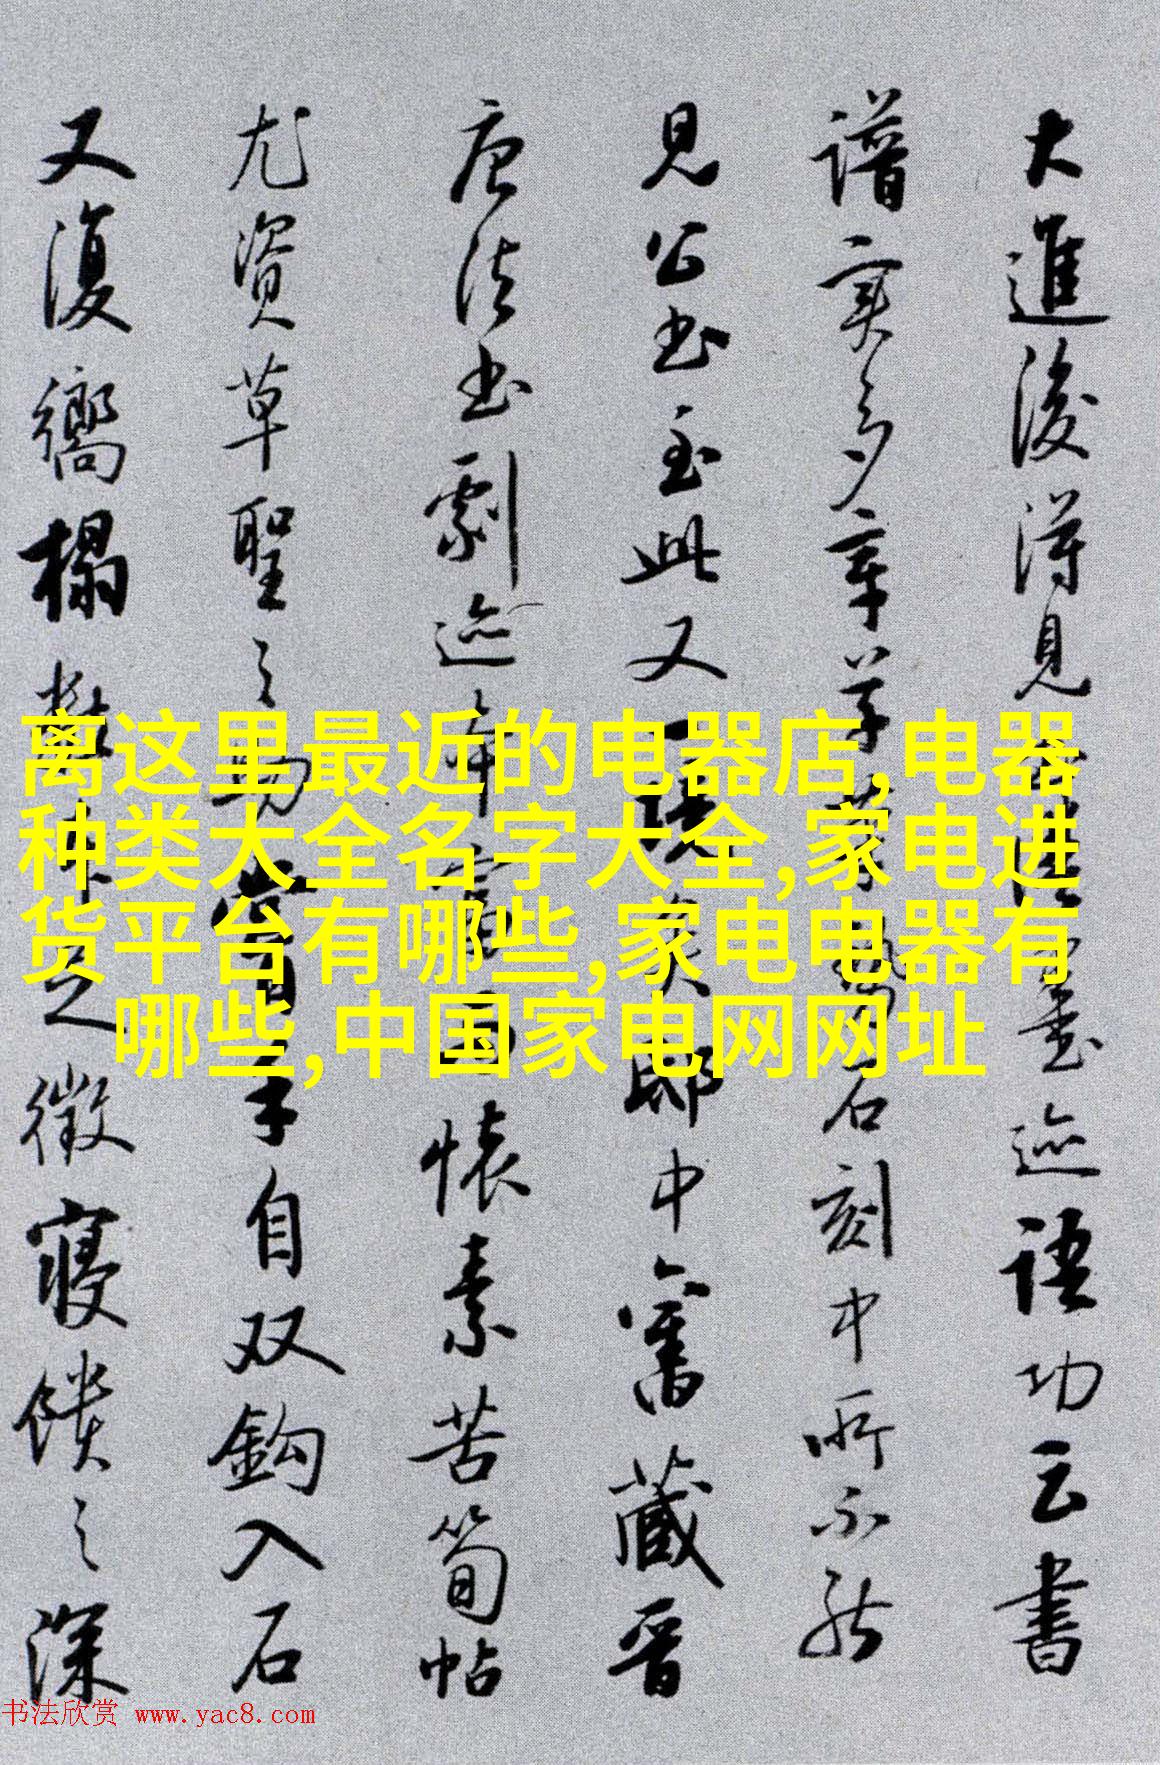 大進後得見墨迹語功云書
譜實多章草石刻中所不能
見公書至此又一邸中舊藏晉
唐法書劇迹懷素苦筍帖
尤資草聖之助手自双鈎入石
又復嚮榻徵寢饋之深
离这里最近的电器店,电器
种类大全名字大全,家电进
货平台有哪些,家电电器有
哪些,中国家电网网址
书法欣赏 www.yac8.com